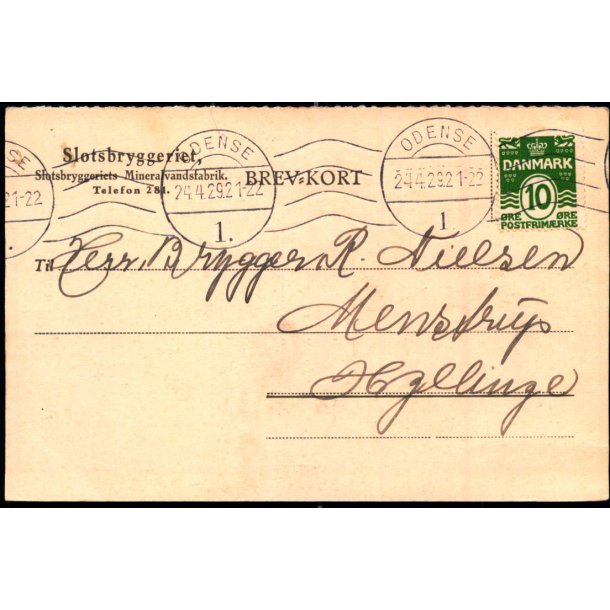 Slotsbryggeriet,
Slotsbryggeriets Mineralvandsfabrik.
Telefon 281.
BREV-KORT
ODENSE
24.4.29.21-22
1.
ODENSE
24.4.29.21-22
1
SE
21-22
DANMARK
10
ØRE ØRE
POSTFRIMÆRKE
Til Herr. Brygger R. Nielsen
Menstrup
Hyllinge